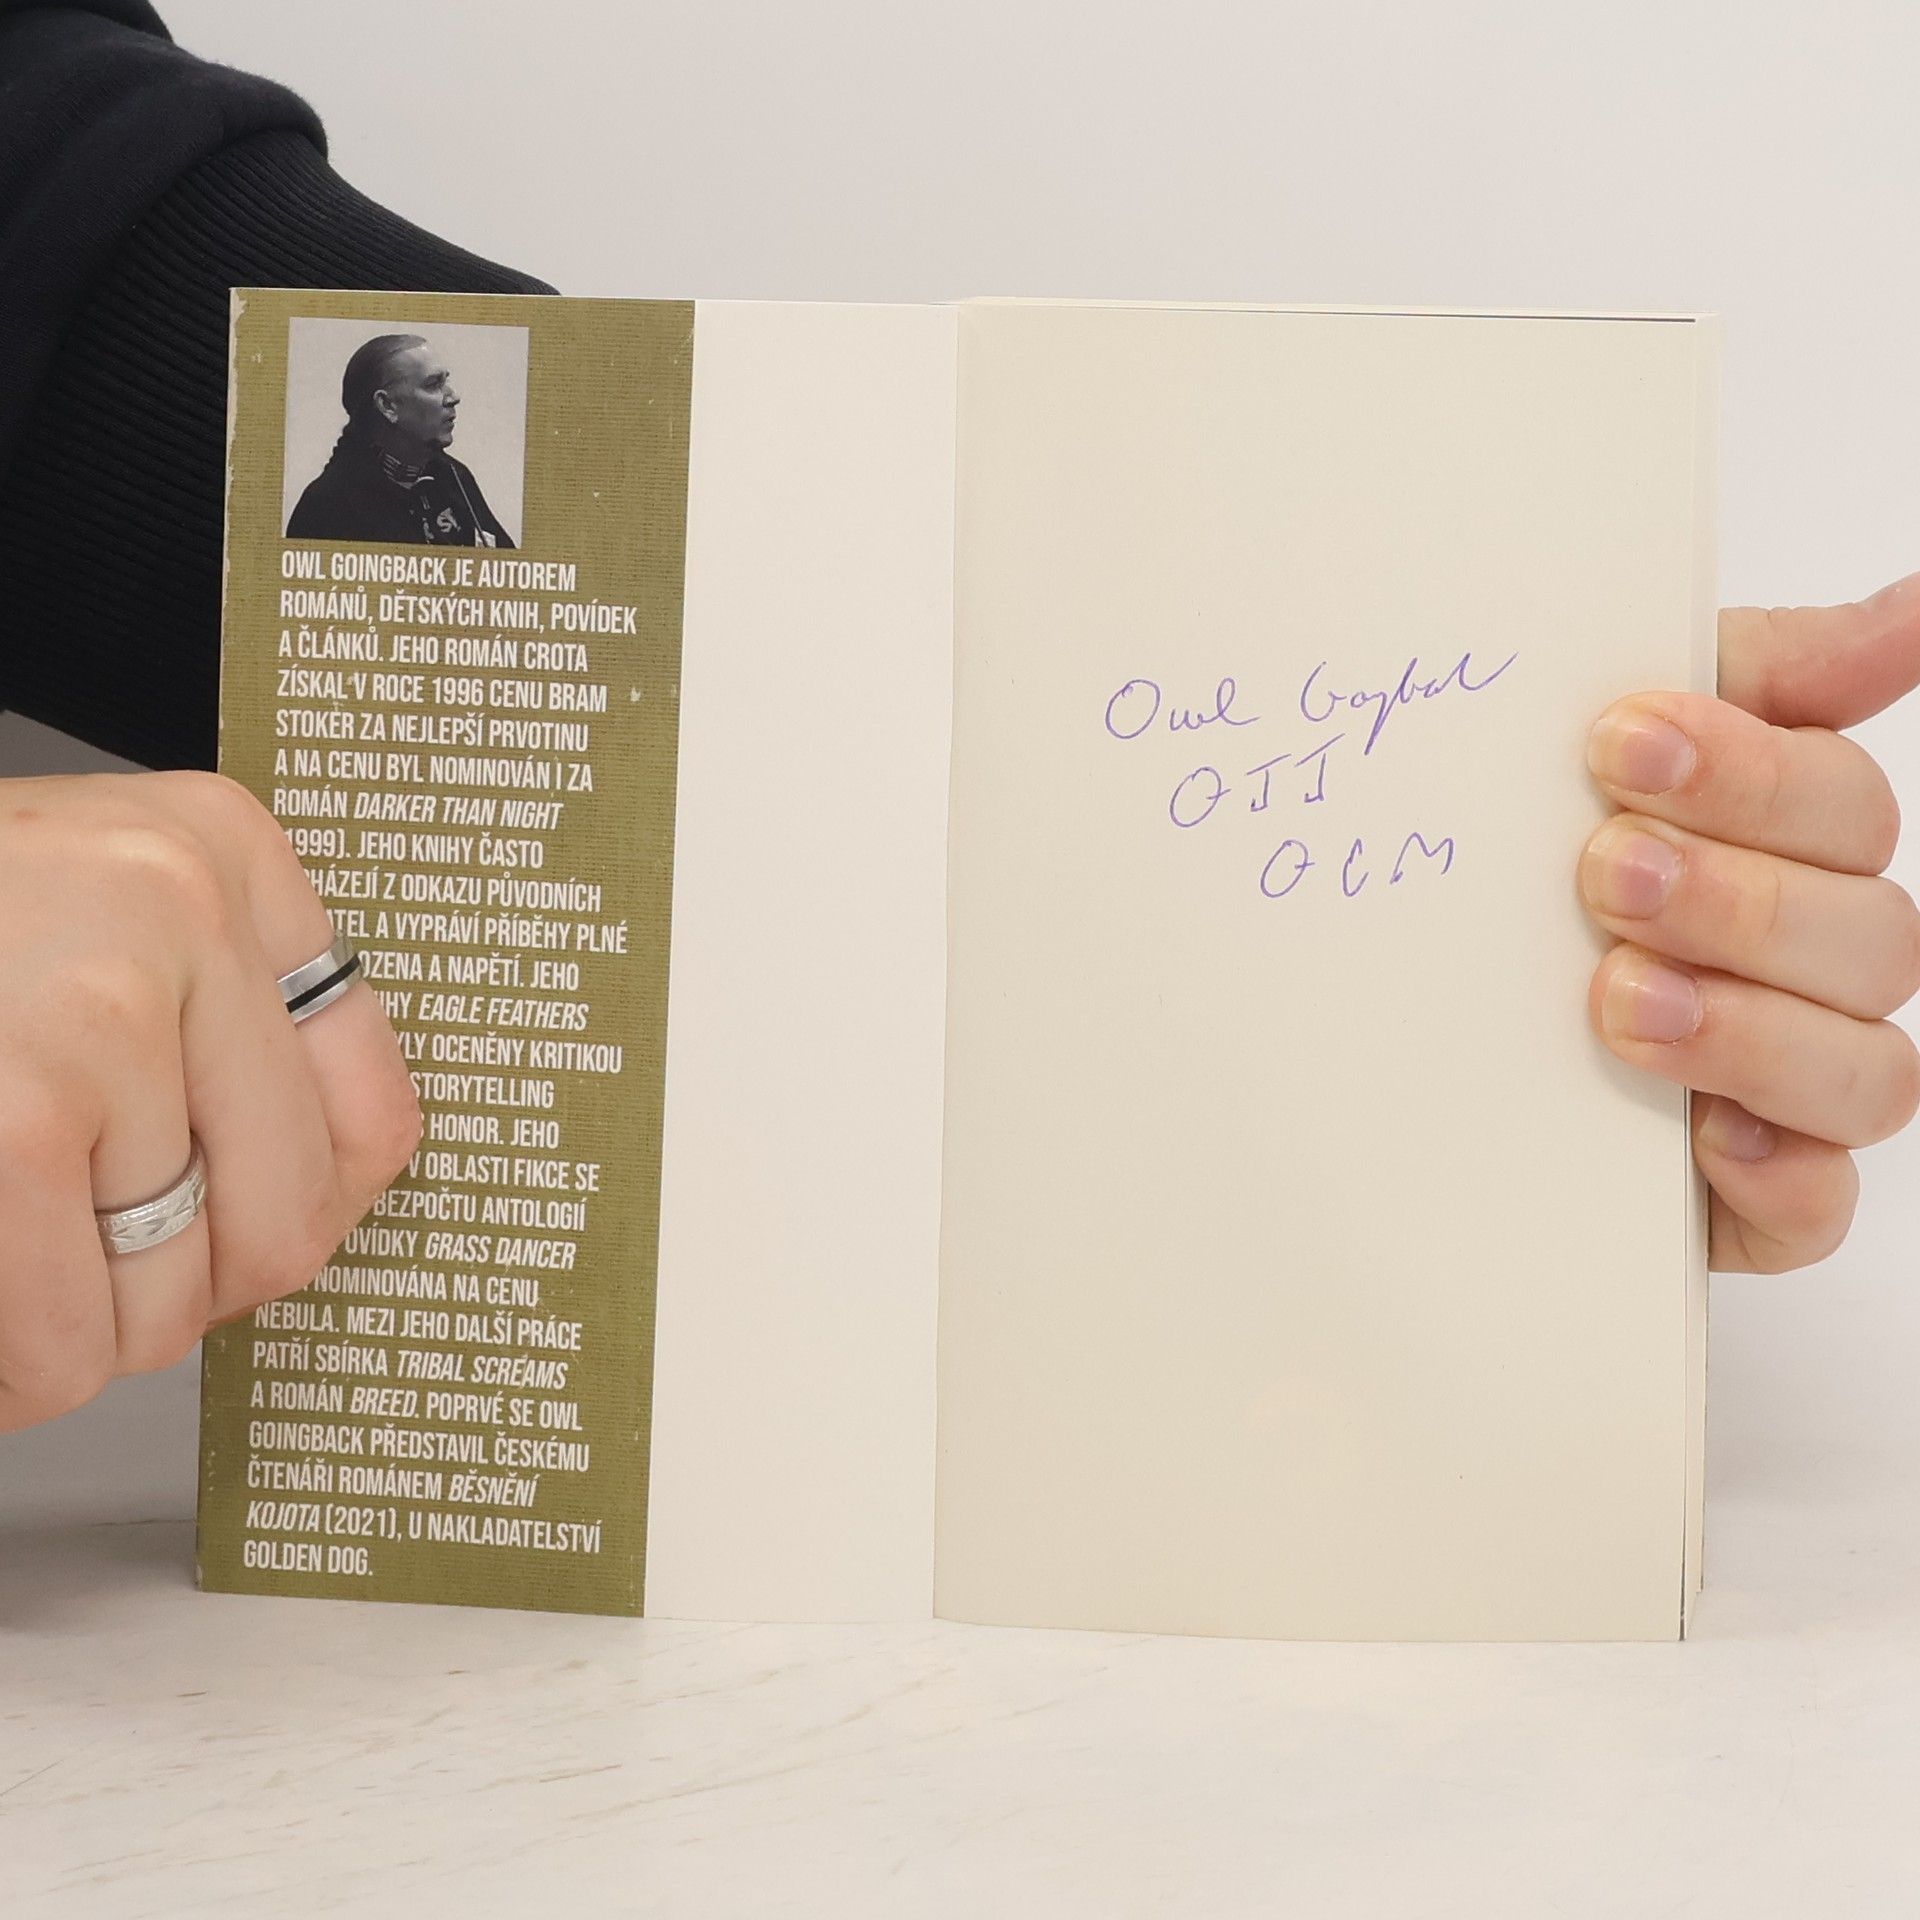 OWL GOINGBACK JE AUTOREM
ROMÁNŮ, DĚTSKÝCH KNIH, POVÍDEK
A ČLÁNKŮ. JEHO ROMÁN CROTA
ZÍSKAL V ROCE 1996 CENU BRAM
STOKER ZA NEJLEPŠÍ PRVOTINU
A NA CENU BYL NOMINOVÁN I ZA
ROMÁN DARKER THAN NIGHT
1999). JEHO KNIHY ČASTO
Z ODKAZU PŮVODNÍCH
A VYPRÁVÍ PŘÍBĚHY PLNÉ
A NAPĚTÍ. JEHO
EAGLE FEATHERS
OCENĚNY KRITIKOU
STORYTELLING
HONOR. JEHO
V OBLASTI FIKCE SE
BEZPOČTU ANTOLOGIÍ
GRASS DANCER
NOMINOVÁNA NA CENU
NEBULA. MEZI JEHO DALŠÍ PRÁCE
PATŘÍ SBÍRKA TRIBAL SCREAMS
A ROMÁN BREED. POPRVÉ SE OWL
GOINGBACK PŘEDSTAVIL ČESKÉMU
ČTENÁŘI ROMÁNEM BĚSNĚNÍ
KOJOTA (2021), U NAKLADATELSTVÍ
GOLDEN DOG.
Owl